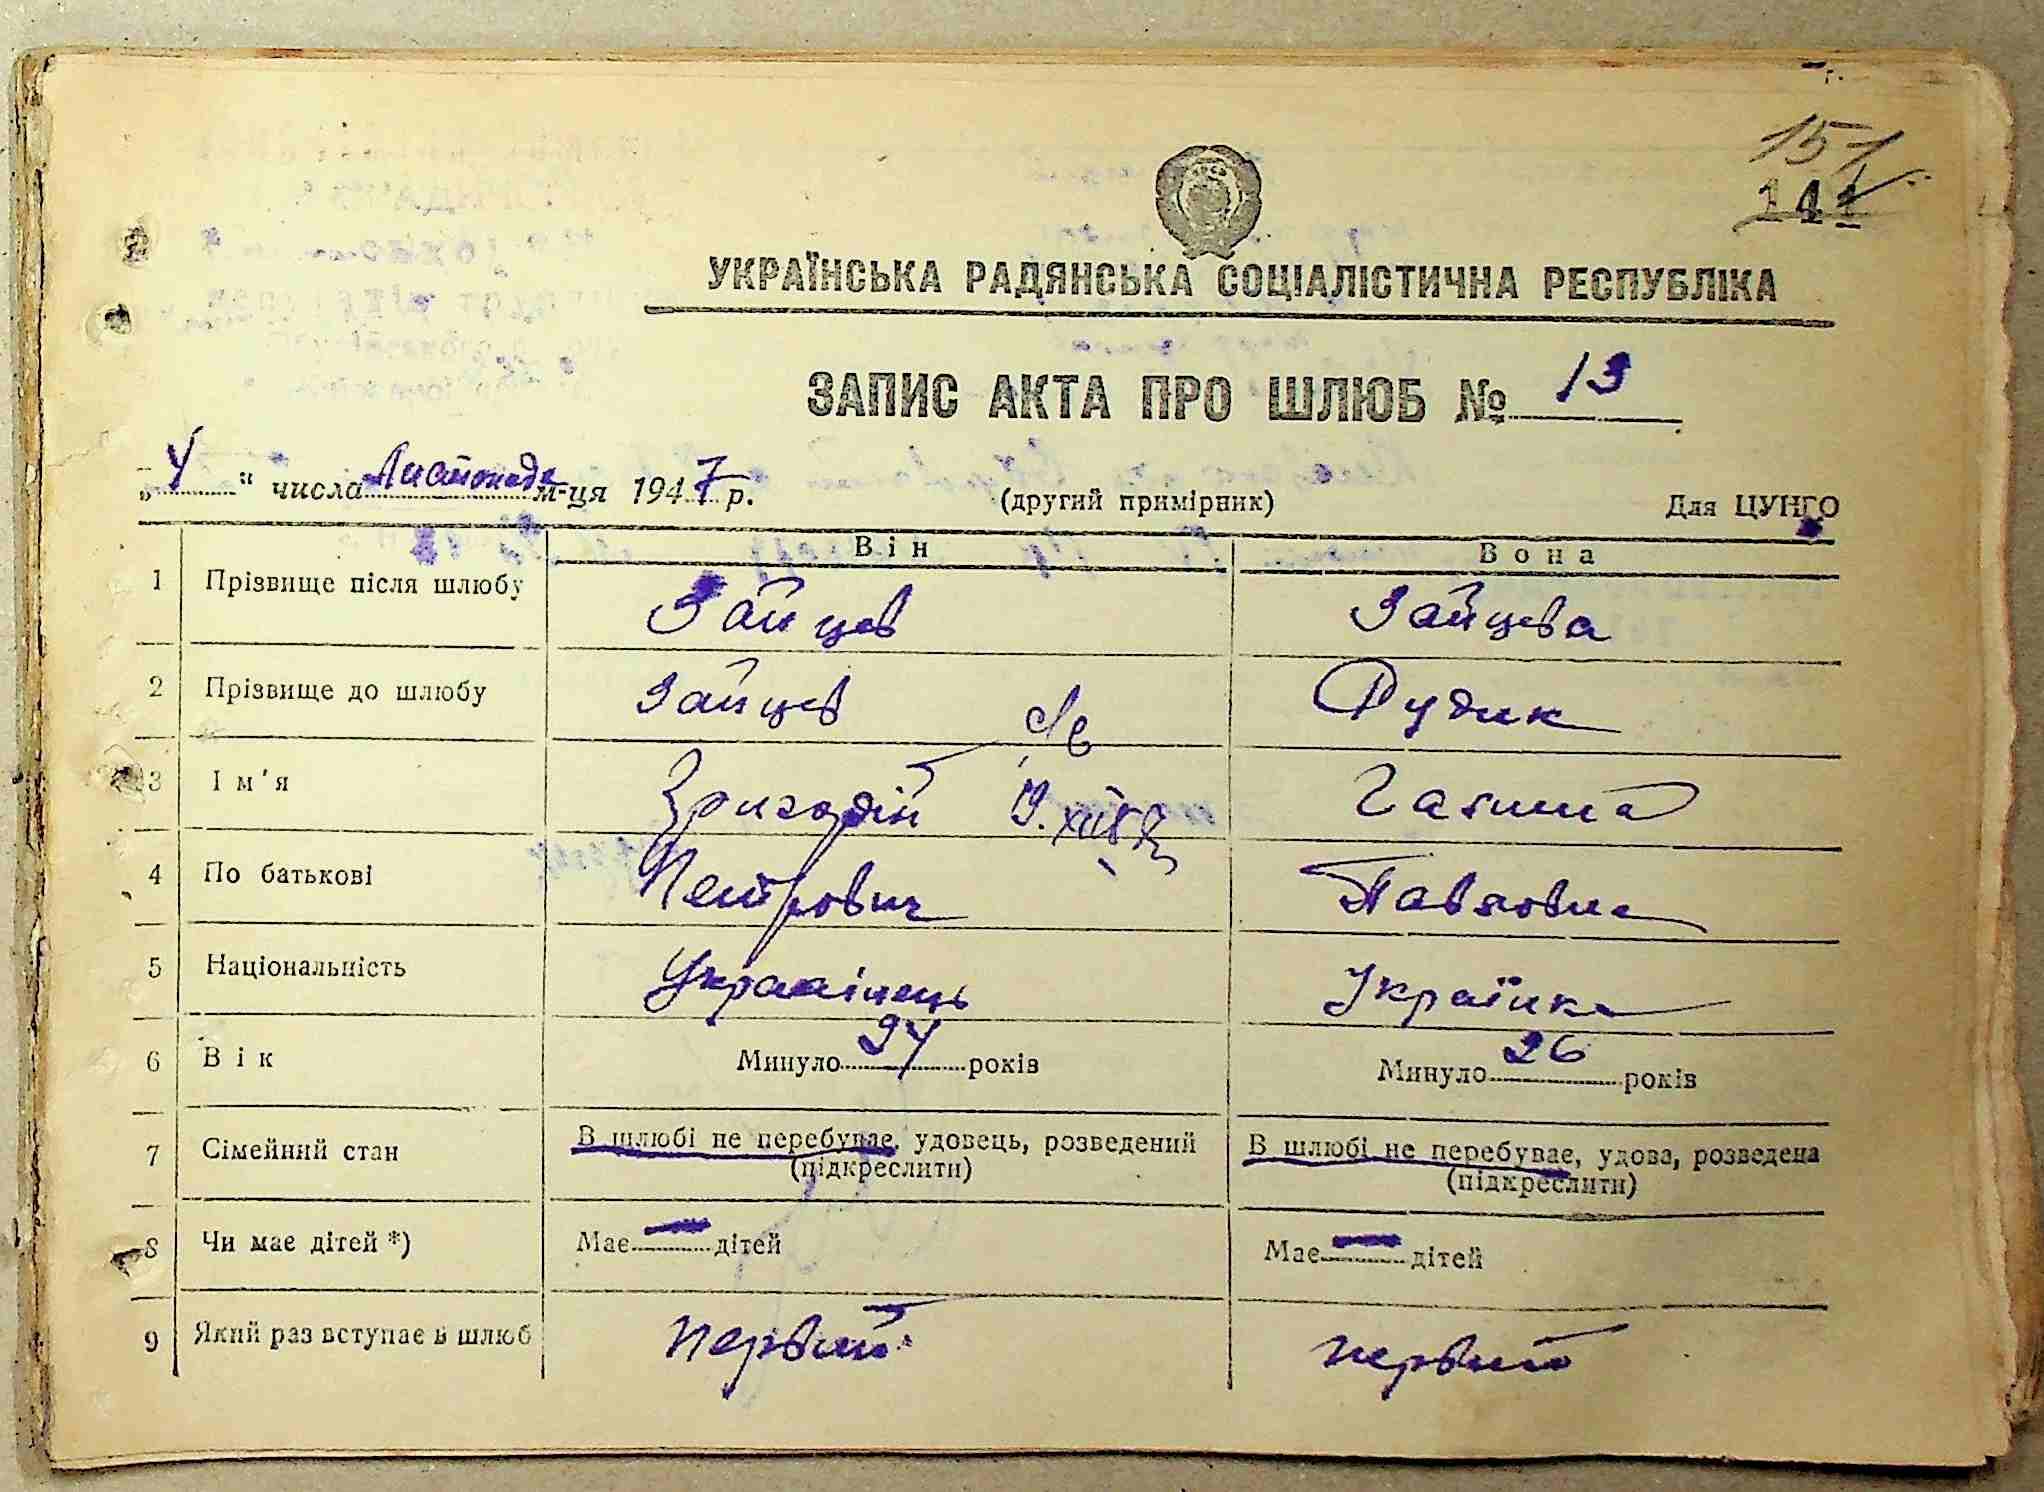 151
141
УКРАЇНСЬКА РАДЯНСЬКА СОЦІАЛІСТИЧНА РЕСПУБЛІКА
ЗАПИС АКТА ПРО ШЛЮБ № 13
„4“ числа Листопада м-ця 1947 р. (другий примірник) Для ЦУНГО
Він Вона
1 Прізвище після шлюбу Зайцев Зайцева
2 Прізвище до шлюбу Зайцев Дудик
3 Ім'я Галина
4 По батькові Петрович Павловна
5 Національність Українець Українка
6 Вік Минуло 24 років Минуло 26 років
7 Сімейний стан В шлюбі не перебуває, удовець, розведений (підкреслити) В шлюбі не перебуває, удова, розведена (підкреслити)
8 Чи має дітей *) Має — дітей Має — дітей
9 Який раз вступає в шлюб первий первий